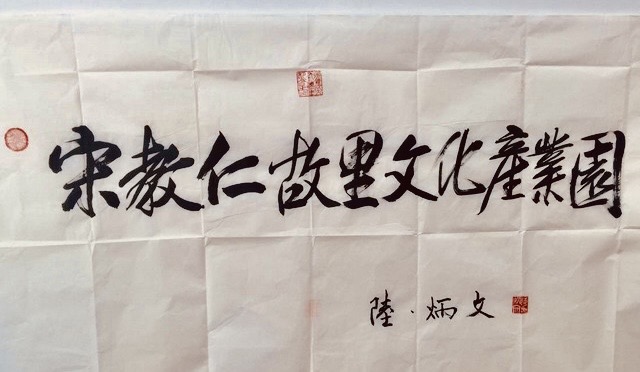 宋教仁故里文化産業園
陸·炳文